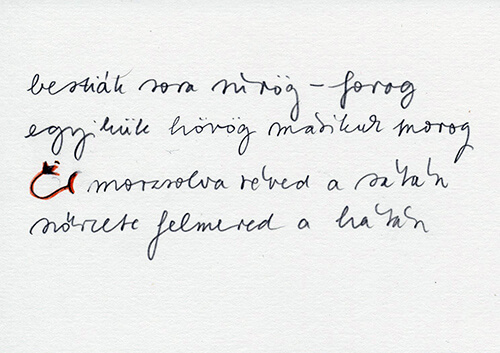 bestiák sora sürög – forog
egyikük hörög másikuk morog
morzsolva réved a sátán
szőrzete felmered a hátán